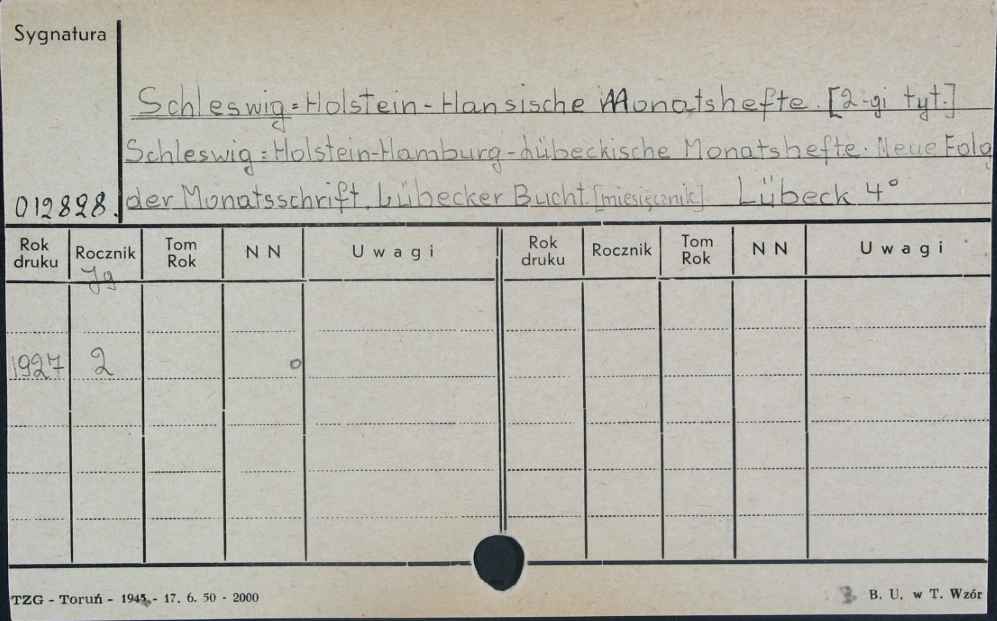 Sygnatura
Schleswig=Holstein-Hansische Monatshefte. [2-gi tyt.]
Schleswig=Holstein-Hamburg-Lübeckische Monatshefte. Neue Folg
012828. der Monatsschrift. Lübecker Bucht. [miesięcznik] Lübeck 4°
Rok druku Rocznik Tom Rok N N Uwagi Rok druku Rocznik Tom Rok N N Uwagi
Jg
1927 2 o
TZG - Toruń - 1945 - 17. 6. 50 - 2000 B. U. w T. Wzór